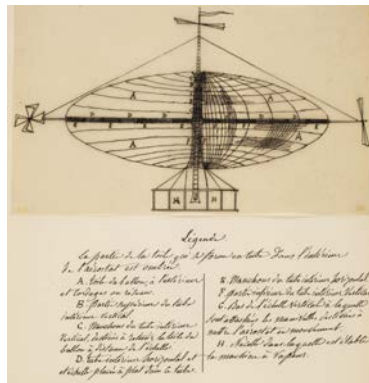 Légende
La partie de la toile qui a forme un tube dans l'intérieur
de l'aérostat est ombrée.
A. Toile du ballon, à l'extérieur
et cordages ou réseau.
B. Partie supérieure du tube
intérieur vertical.
C. Manchons du tube intérieur
vertical, destinés à retenir la toile du
ballon à distance de l'échelle.
D. tube intérieur horizontal et
et échelle placée à plat dans le tube.
E. Manchons du tube intérieur horizontal.
F. partie inférieure du tube intérieur vertical.
G. Bas de l'échelle verticale à laquelle
sont attachées les manivelles destinées à
mettre l'aérostat en mouvement.
H. Nacelle dans laquelle est établie
la machine à vapeur.